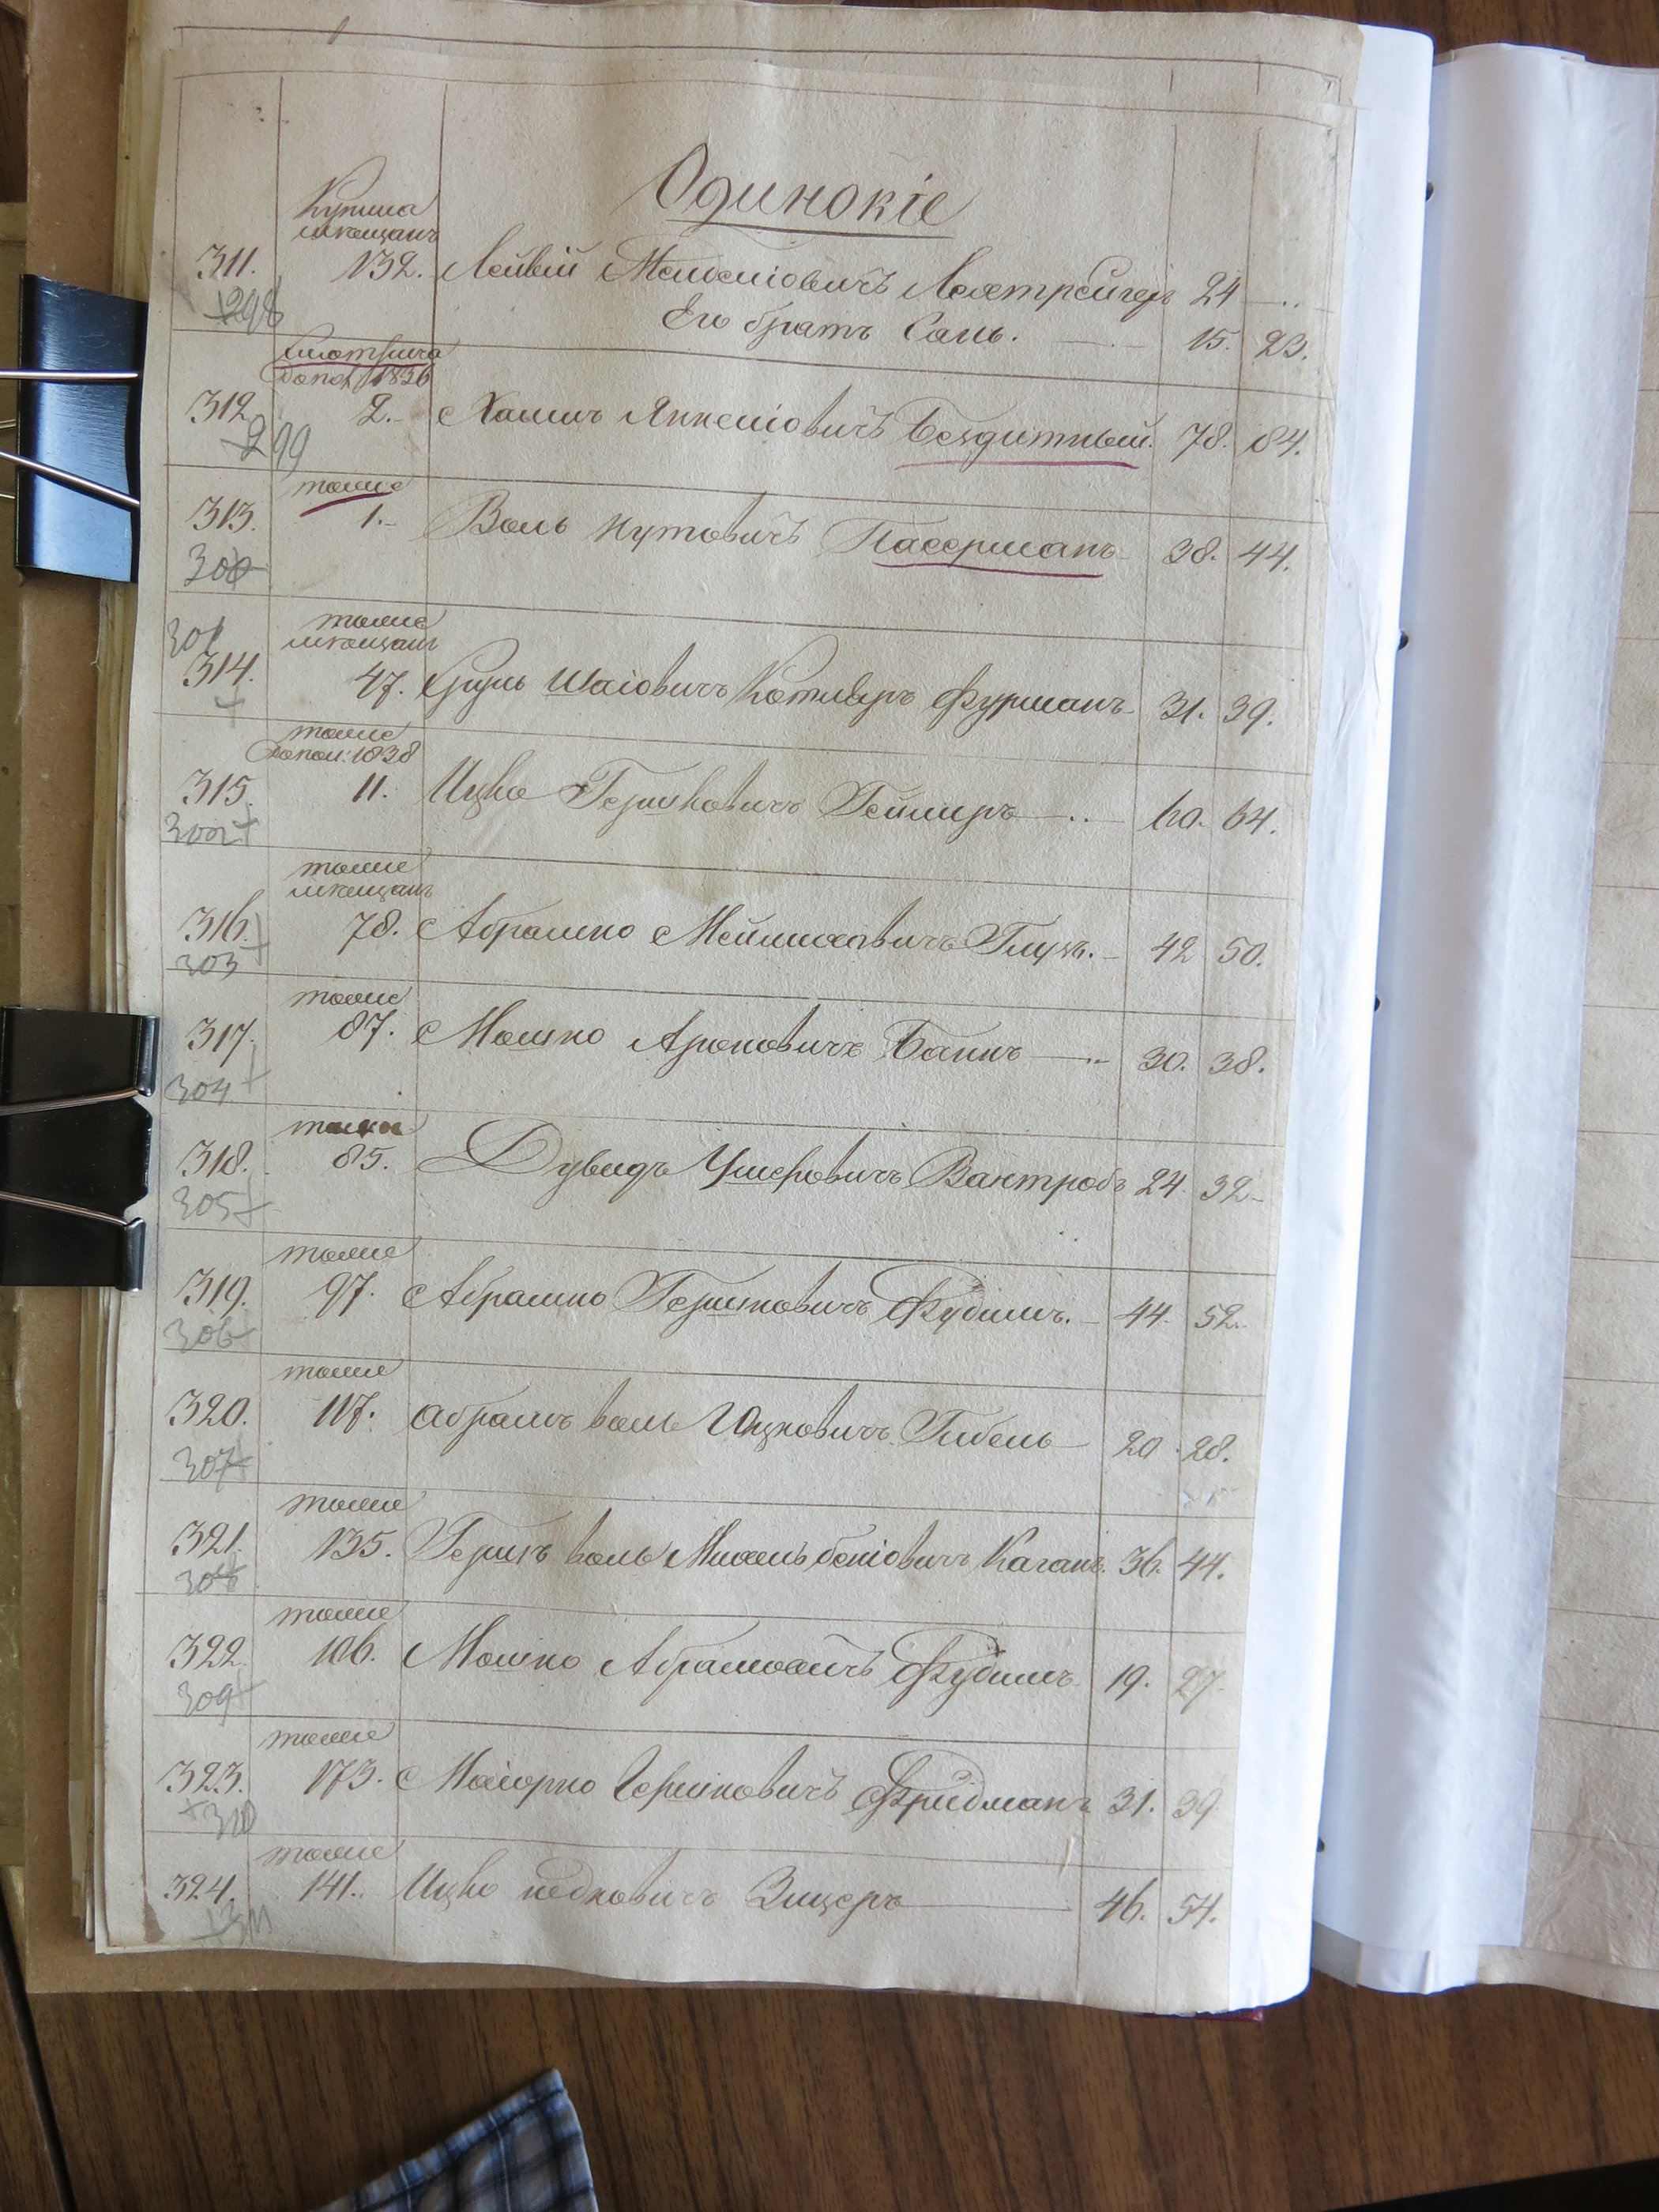 Одинокіе
Купина
мѣщанъ
311. 132. Лейвій Мошковичъ 24
298
Его братъ Сань. 15. 23.
Смотрича
Допол 1836
312. 2. Хаимъ Янкеліовичъ Бездитный. 78. 84.
299
тоже
313. 1. Воль Нутовичъ Пасерманъ 38. 44.
300
301
тоже
мѣщанъ
314. 47. Сруль Шаіовичъ Котляръ Фурманъ 31. 39.
тоже
Допол: 1838
315. 11. Ицко Гершковичъ 60. 64.
302
тоже
мѣщанъ
316. 78. Абрамко Глузъ. 42 50.
303
тоже
317. 87. Мошко Ароновичъ Банкъ 30. 38.
304
тоже
318. 85. Дувидъ Ушеровичъ Вантробъ 24. 32
305
тоже
319. 97. Абрамко Гершковичъ Фудимъ. 44. 52.
306
тоже
320. 117. Абрамъ воль Ицковичъ 20 28.
307
тоже
321. 135. Гершъ воль Каганъ. 36. 44.
308
тоже
322. 106. Мошко Абрамовичъ Фудимъ 19. 27.
309
тоже
323. 173. Маіорко Гершковичъ Фридманъ 31. 39
310
тоже
324. 141. Ицко Зицеръ 46. 54.
311